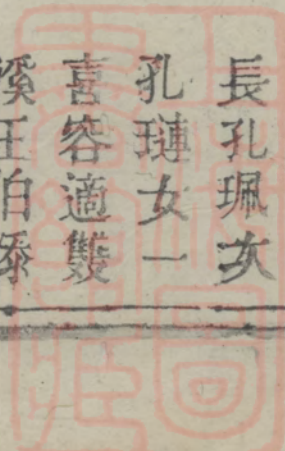 長孔珮女
孔璉女一
喜容適雙
溪王伯